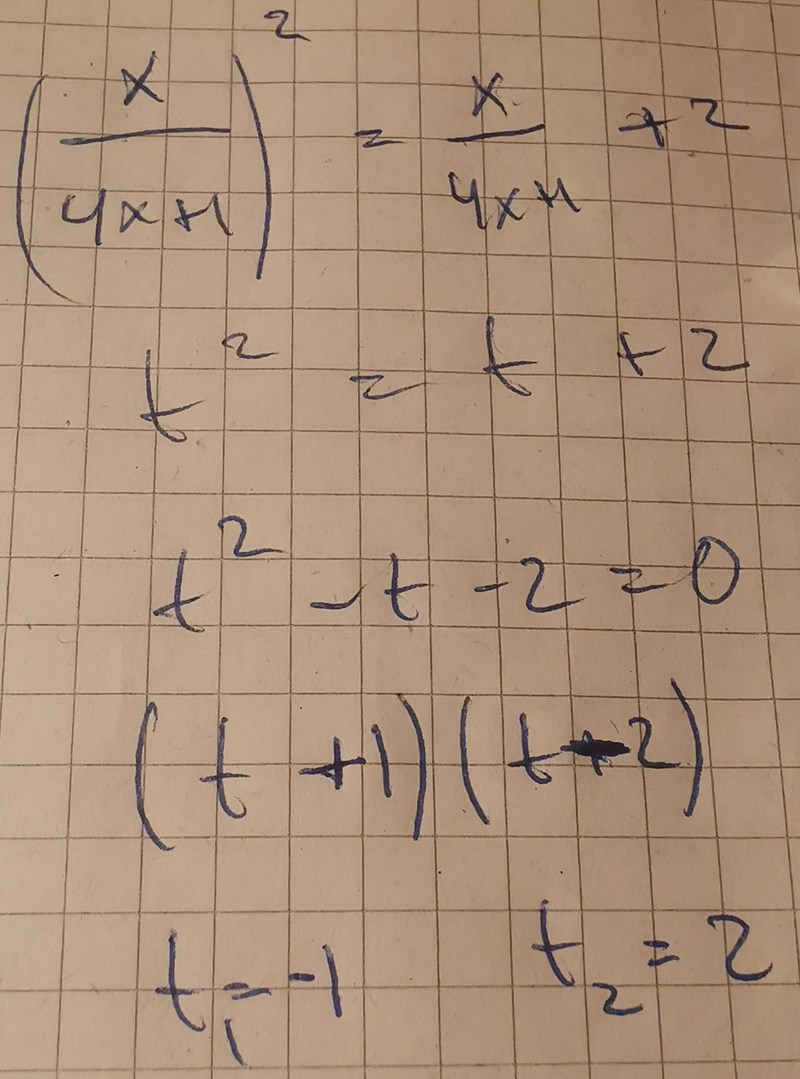 (x/(4x+1))² = x/(4x+1) + 2
t² = t + 2
t² - t - 2 = 0
(t + 1)(t - 2)
t₁ = -1 t₂ = 2